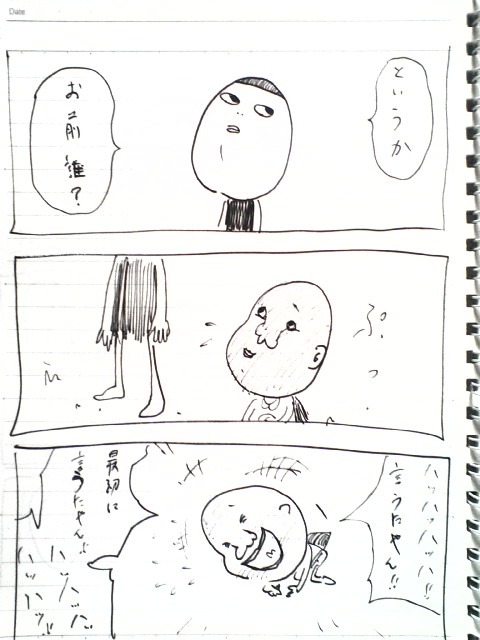 Date
というか
お前誰?
ぷっ
ハッハッハッハ!!
言うたやん!!
最初に
言うたやん!!
ハッハッハッ
ハッハッ!!